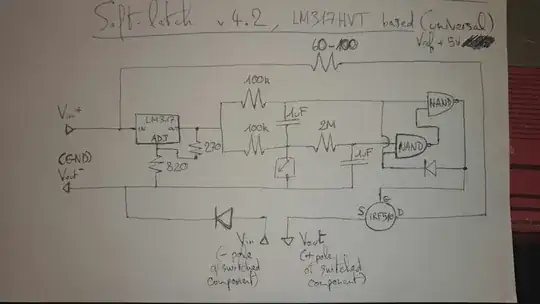 Soft-latch v4.2, LM317HVT based (universal)
Vdf + 5V
60-100
100k
1uF
NAND
Vin+
LM317
IN OUT
ADJ
270
100k
2M
1uF
NAND
(GND)
Vout-
820
G
S IRF510 D
Vin
(- pole
of switched
component)
Vout
(+ pole
of switched
component)